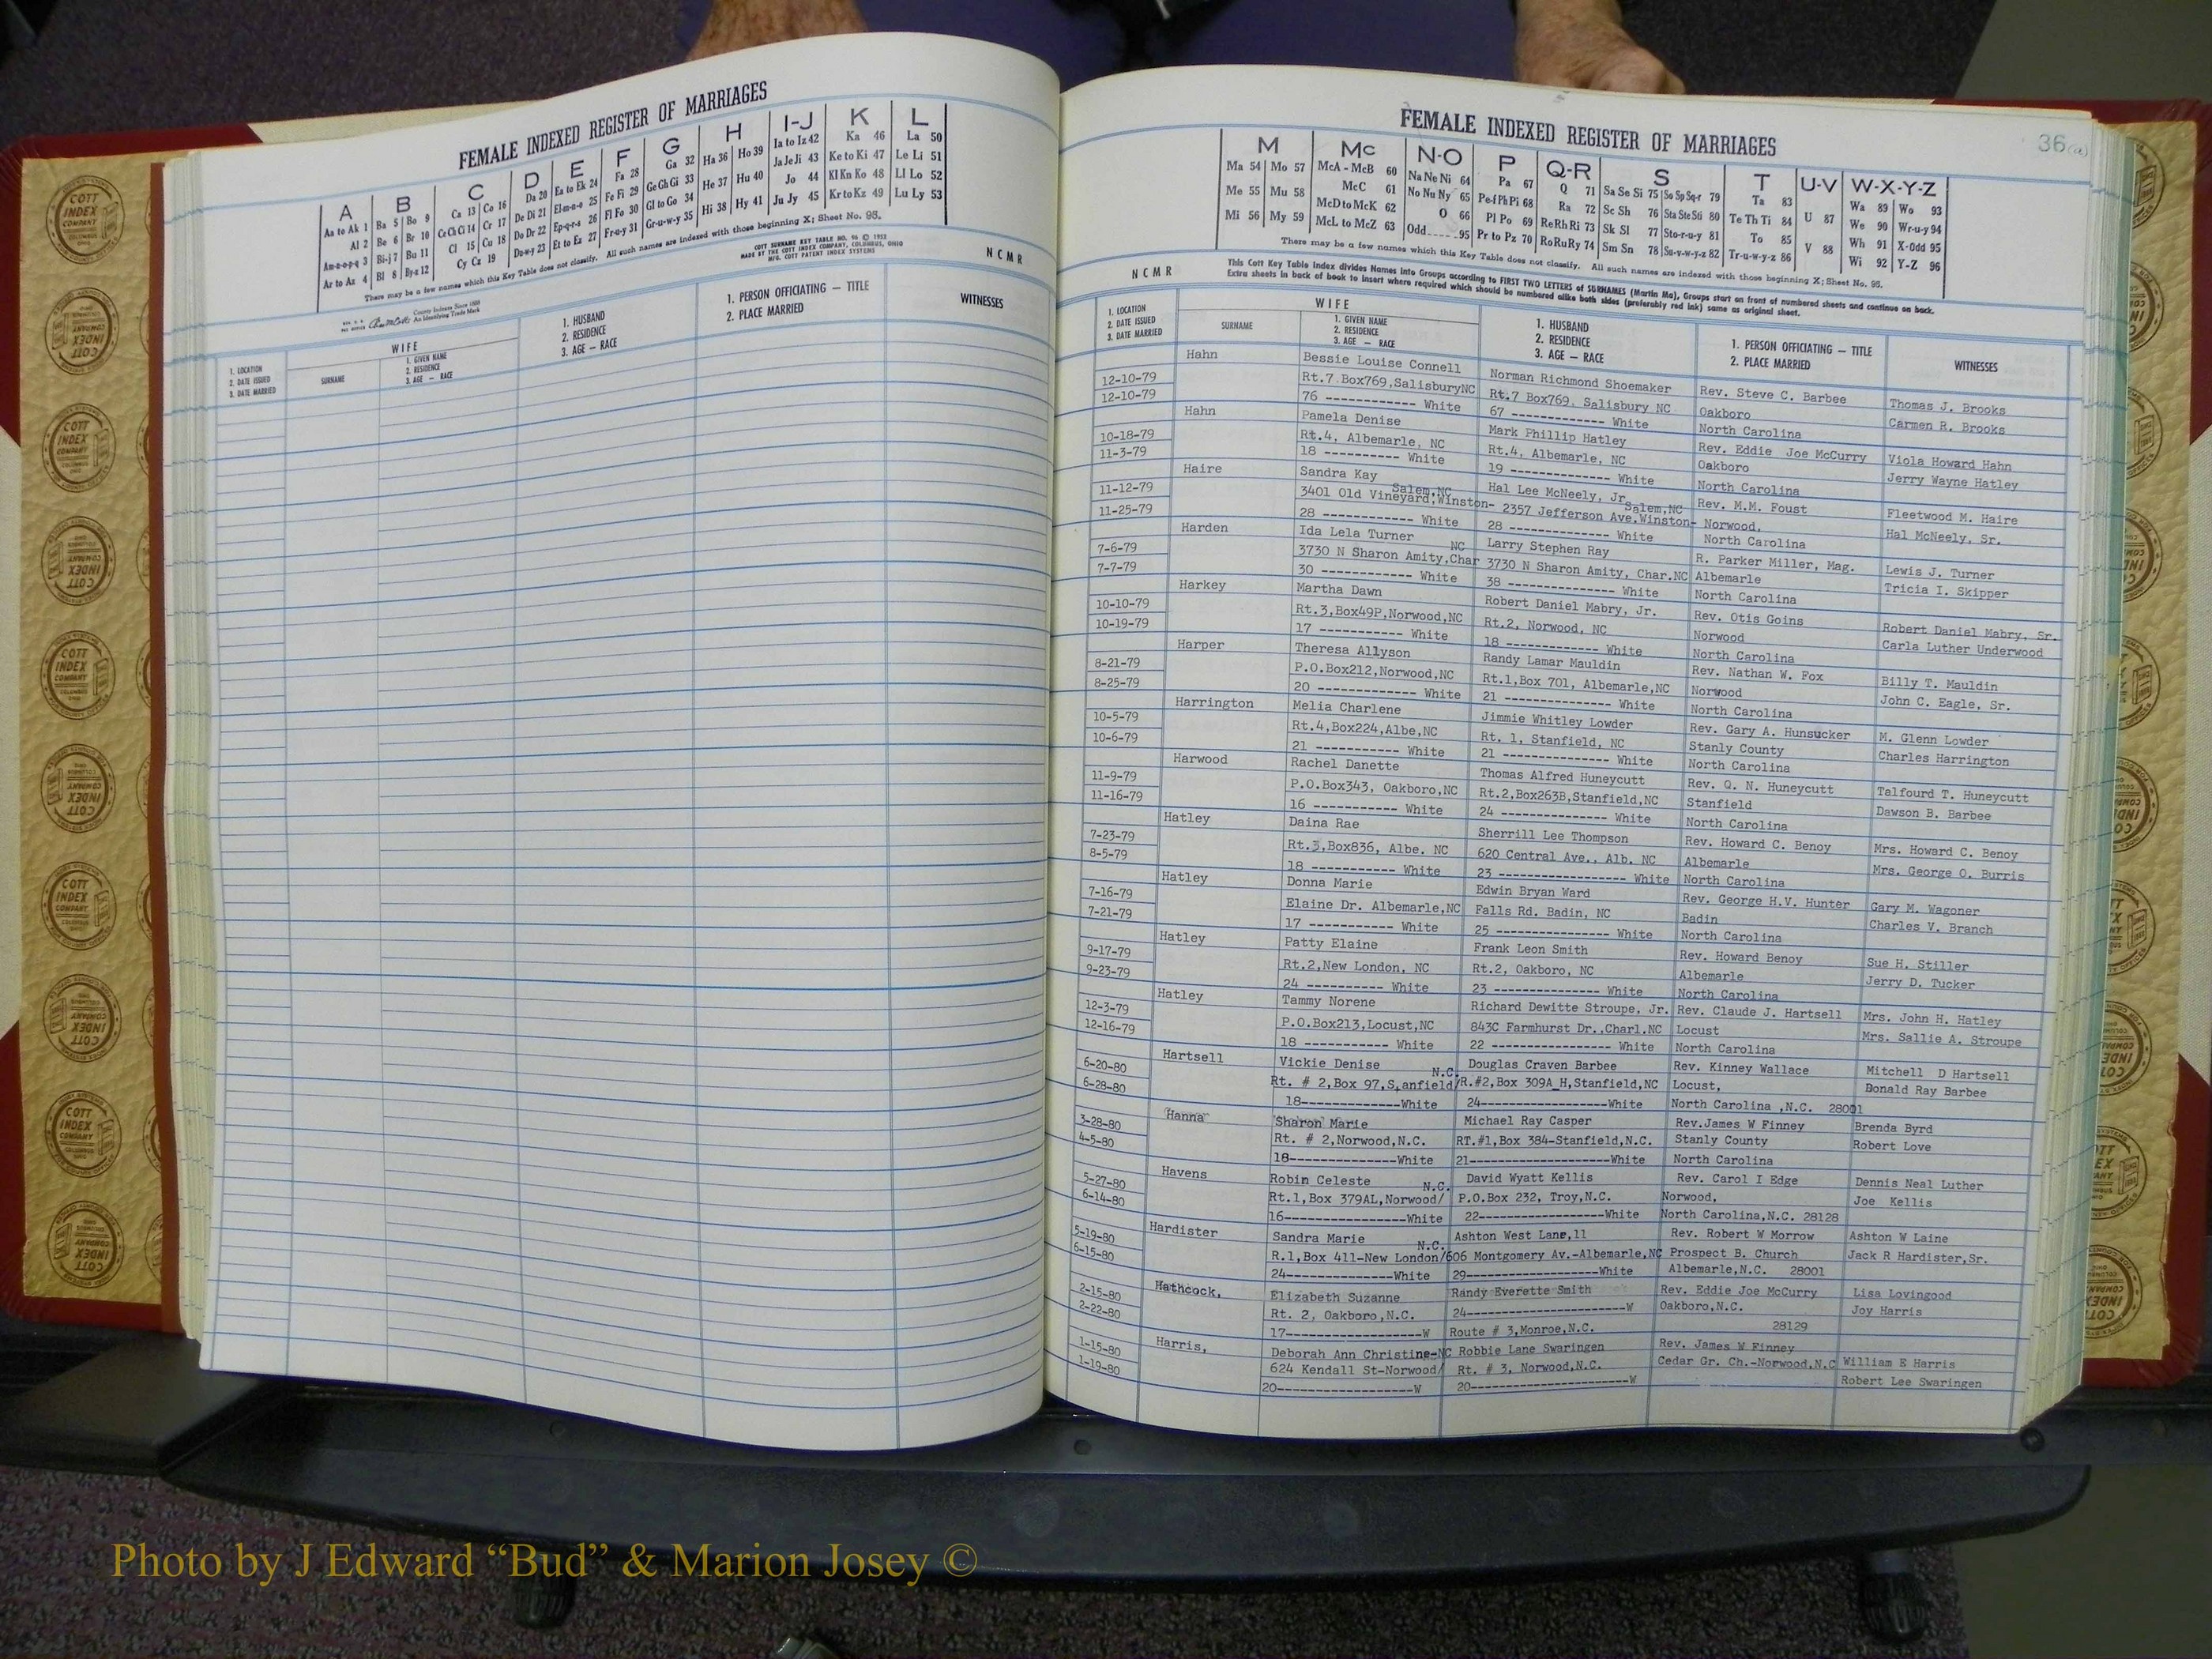 FEMALE INDEXED REGISTER OF MARRIAGES
A B C D E F G H I-J K L
Aa to Ak 1 Ba 5 Bo 9 Ca 13 Co 16 Da 20 Ea to Ek 24 Fa 28 Ga 32 Ha 36 Ho 39 Ia to Iz 42 Ka 46 La 50
Al 2 Be 6 Br 10 Ce Ch Ci 14 Cr 17 De Di 21 El-m-n-o 25 Fe Fi 29 Ge Gh Gi 33 He 37 Hu 40 Ja Je Ji 43 Ke to Ki 47 Le Li 51
Am-n-o-p-q 3 Bi-j 7 Bu 11 Cl 15 Cu 18 Do Dr 22 Ep-q-r-s 26 Fl Fo 30 Gl to Go 34 Hi 38 Hy 41 Jo 44 Kl Kn Ko 48 Ll Lo 52
Ar to Az 4 Bl 8 By-z 12 Cy Cz 19 Du-w-y 23 Et to Ez 27 Fr-u-y 31 Gr-u-w-y 35 Ju Jy 45 Kr to Kz 49 Lu Ly 53
There may be a few names which this Key Table does not classify. All such names are indexed with those beginning X; Sheet No. 95.
COTT SURNAME KEY TABLE NO. 96 © 1923
MADE BY THE COTT INDEX COMPANY, COLUMBUS, OHIO
MFG. COTT PATENT INDEX SYSTEMS
NCMR
County Indexes Since 1888
An Identifying Trade Mark
1. LOCATION
2. DATE ISSUED
3. DATE MARRIED
WIFE
SURNAME
1. GIVEN NAME
2. RESIDENCE
3. AGE — RACE
1. HUSBAND
2. RESIDENCE
3. AGE — RACE
1. PERSON OFFICIATING — TITLE
2. PLACE MARRIED
WITNESSES
FEMALE INDEXED REGISTER OF MARRIAGES
36(a)
M Mc N-O P Q-R S T U-V W-X-Y-Z
Ma 54 Mo 57 McA - McB 60 Na Ne Ni 64 Pa 67 Q 71 Sa Se Si 75 So Sp Sq-r 79 Ta 83 U 87 Wa 89 Wo 93
Me 55 Mu 58 McC 61 No Nu Ny 65 Pe-f Ph Pi 68 Ra 72 Sc Sh 76 Sta Ste Sti 80 Te Th Ti 84 V 88 We 90 Wr-u-y 94
Mi 56 My 59 McD to McK 62 O 66 Pl Po 69 Re Rh Ri 73 Sk Sl 77 Sto-r-u-y 81 To 85 Wh 91 X-Odd 95
McL to McZ 63 Odd 95 Pr to Pz 70 Ro Ru Ry 74 Sm Sn 78 Su-v-w-y-z 82 Tr-u-w-y-z 86 Wi 92 Y-Z 96
There may be a few names which this Key Table does not classify. All such names are indexed with those beginning X; Sheet No. 95.
This Cott Key Table Index divides Names into Groups according to FIRST TWO LETTERS of SURNAMES (Martin Ma), Groups start on front of numbered sheets and continue on back.
Extra sheets in back of book to insert where required which should be numbered alike both sides (preferably red ink) same as original sheet.
NCMR
1. LOCATION
2. DATE ISSUED
3. DATE MARRIED
WIFE
SURNAME
1. GIVEN NAME
2. RESIDENCE
3. AGE — RACE
1. HUSBAND
2. RESIDENCE
3. AGE — RACE
1. PERSON OFFICIATING — TITLE
2. PLACE MARRIED
WITNESSES
Hahn Bessie Louise Connell Norman Richmond Shoemaker Rev. Steve C. Barbee Thomas J. Brooks
12-10-79 Rt.7 Box769,SalisburyNC Rt.7 Box769, Salisbury NC Oakboro Carmen R. Brooks
12-10-79 76 ------------ White 67 ------------ White North Carolina
Hahn Pamela Denise Mark Phillip Hatley Rev. Eddie Joe McCurry Viola Howard Hahn
10-18-79 Rt.4, Albemarle, NC Rt.4, Albemarle, NC Oakboro Jerry Wayne Hatley
11-3-79 18 ---------- White 19 ------------ White North Carolina
Haire Sandra Kay Hal Lee McNeely, Jr. Rev. M.M. Foust Fleetwood M. Haire
11-12-79 3401 Old Vineyard,Winston-Salem,NC 2357 Jefferson Ave.Winston-Salem,NC Norwood, Hal McNeely, Sr.
11-25-79 28 ------------ White 28 ------------ White North Carolina
Harden Ida Lela Turner Larry Stephen Ray R. Parker Miller, Mag. Lewis J. Turner
7-6-79 3730 N Sharon Amity,Char NC 3730 N Sharon Amity, Char.NC Albemarle Tricia I. Skipper
7-7-79 30 ------------ White 38 ------------ White North Carolina
Harkey Martha Dawn Robert Daniel Mabry, Jr. Rev. Otis Goins Robert Daniel Mabry, Sr.
10-10-79 Rt.3,Box49P,Norwood,NC Rt.2, Norwood, NC Norwood Carla Luther Underwood
10-19-79 17 ----------- White 18 ------------ White North Carolina
Harper Theresa Allyson Randy Lamar Mauldin Rev. Nathan W. Fox Billy T. Mauldin
8-21-79 P.O.Box212,Norwood,NC Rt.1,Box 701, Albemarle,NC Norwood John C. Eagle, Sr.
8-25-79 20 ------------ White 21 ------------ White North Carolina
Harrington Melia Charlene Jimmie Whitley Lowder Rev. Gary A. Hunsucker M. Glenn Lowder
10-5-79 Rt.4,Box224,Albe,NC Rt. 1, Stanfield, NC Stanly County Charles Harrington
10-6-79 21 ----------- White 21 ------------ White North Carolina
Harwood Rachel Danette Thomas Alfred Huneycutt Rev. Q. N. Huneycutt Talfourd T. Huneycutt
11-9-79 P.O.Box343, Oakboro,NC Rt.2,Box263B,Stanfield,NC Stanfield Dawson B. Barbee
11-16-79 16 ----------- White 24 ------------ White North Carolina
Hatley Daina Rae Sherrill Lee Thompson Rev. Howard C. Benoy Mrs. Howard C. Benoy
7-23-79 Rt.3,Box836, Albe. NC 620 Central Ave., Alb. NC Albemarle Mrs. George O. Burris
8-5-79 18 ----------- White 23 -------------- White North Carolina
Hatley Donna Marie Edwin Bryan Ward Rev. George H.V. Hunter Gary M. Wagoner
7-16-79 Elaine Dr. Albemarle,NC Falls Rd. Badin, NC Badin Charles V. Branch
7-21-79 17 ----------- White 25 ------------- White North Carolina
Hatley Patty Elaine Frank Leon Smith Rev. Howard Benoy Sue H. Stiller
9-17-79 Rt.2,New London, NC Rt.2, Oakboro, NC Albemarle Jerry D. Tucker
9-23-79 24 ---------- White 23 ------------ White North Carolina
Hatley Tammy Norene Richard Dewitte Stroupe, Jr. Rev. Claude J. Hartsell Mrs. John H. Hatley
12-3-79 P.O.Box213,Locust,NC 843C Farmhurst Dr.,Charl.NC Locust Mrs. Sallie A. Stroupe
12-16-79 18 ----------- White 22 ------------ White North Carolina
Hartsell Vickie Denise Douglas Craven Barbee Rev. Kinney Wallace Mitchell D Hartsell
6-20-80 Rt. # 2,Box 97,S.anfield/N.C. R.#2,Box 309A_H,Stanfield,NC Locust, Donald Ray Barbee
6-28-80 18-------------White 24--------------White North Carolina ,N.C. 28001
Hanna Sharon Marie Michael Ray Casper Rev.James W Finney Brenda Byrd
3-28-80 Rt. # 2,Norwood,N.C. RT.#1,Box 384-Stanfield,N.C. Stanly County Robert Love
4-5-80 18--------------White 21-----------------White North Carolina
Havens Robin Celeste David Wyatt Kellis Rev. Carol I Edge Dennis Neal Luther
5-27-80 Rt.1,Box 379AL,Norwood/N.C. P.O.Box 232, Troy,N.C. Norwood, Joe Kellis
6-14-80 16--------------White 22---------------White North Carolina,N.C. 28128
Hardister Sandra Marie Ashton West Lane,11 Rev. Robert W Morrow Ashton W Laine
5-19-80 R.1,Box 411-New London/N.C. 606 Montgomery Av.-Albemarle,NC Prospect B. Church Jack R Hardister,Sr.
6-15-80 24--------------White 29-----------------White Albemarle,N.C. 28001
Hathcock, Elizabeth Suzanne Randy Everette Smith Rev. Eddie Joe McCurry Lisa Lovingood
2-15-80 Rt. 2, Oakboro,N.C. 24-------------------W Oakboro,N.C. Joy Harris
2-22-80 17-----------------W Route # 3,Monroe,N.C. 28129
Harris, Deborah Ann Christine-NC Robbie Lane Swaringen Rev. James W Finney William E Harris
1-15-80 624 Kendall St-Norwood/ Rt. # 3, Norwood,N.C. Cedar Gr. Ch.-Norwood,N.C Robert Lee Swaringen
1-19-80 20-----------------W 20-------------------W
COTT INDEX COMPANY COLUMBUS OHIO
Photo by J Edward “Bud” & Marion Josey ©